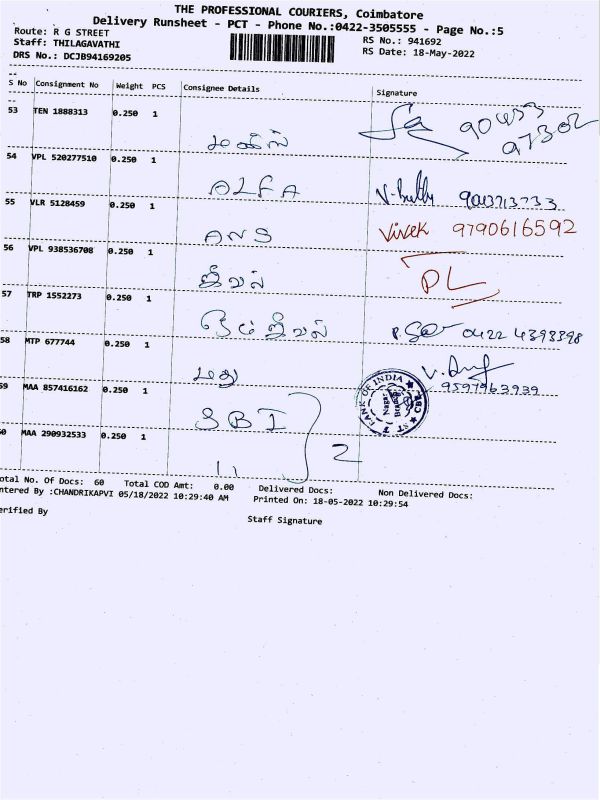 THE PROFESSIONAL COURIERS, Coimbatore
Delivery Runsheet - PCT - Phone No.:0422-3505555 - Page No.:5
Route: R G STREET RS No.: 941692
Staff: THILAGAVATHI RS Date: 18-May-2022
DRS No.: DCJB94169205
S No Consignment No Weight PCS Consignee Details Signature
53 TEN 1888313 0.250 1
54 VPL 520277510 0.250 1
ALFA
55 VLR 5128459 0.250 1 Vivek 9790616592
ANS
56 VPL 938536708 0.250 1
DL
57 TRP 1552273 0.250 1
0422 4393398
58 MTP 677744 0.250 1
மது 9597963939
59 MAA 857416162 0.250 1
SBI
60 MAA 290932533 0.250 1
11 2
Total No. Of Docs: 60 Total COD Amt: 0.00 Delivered Docs: Non Delivered Docs:
Entered By :CHANDRIKAPVI 05/18/2022 10:29:40 AM Printed On: 18-05-2022 10:29:54
Verified By Staff Signature